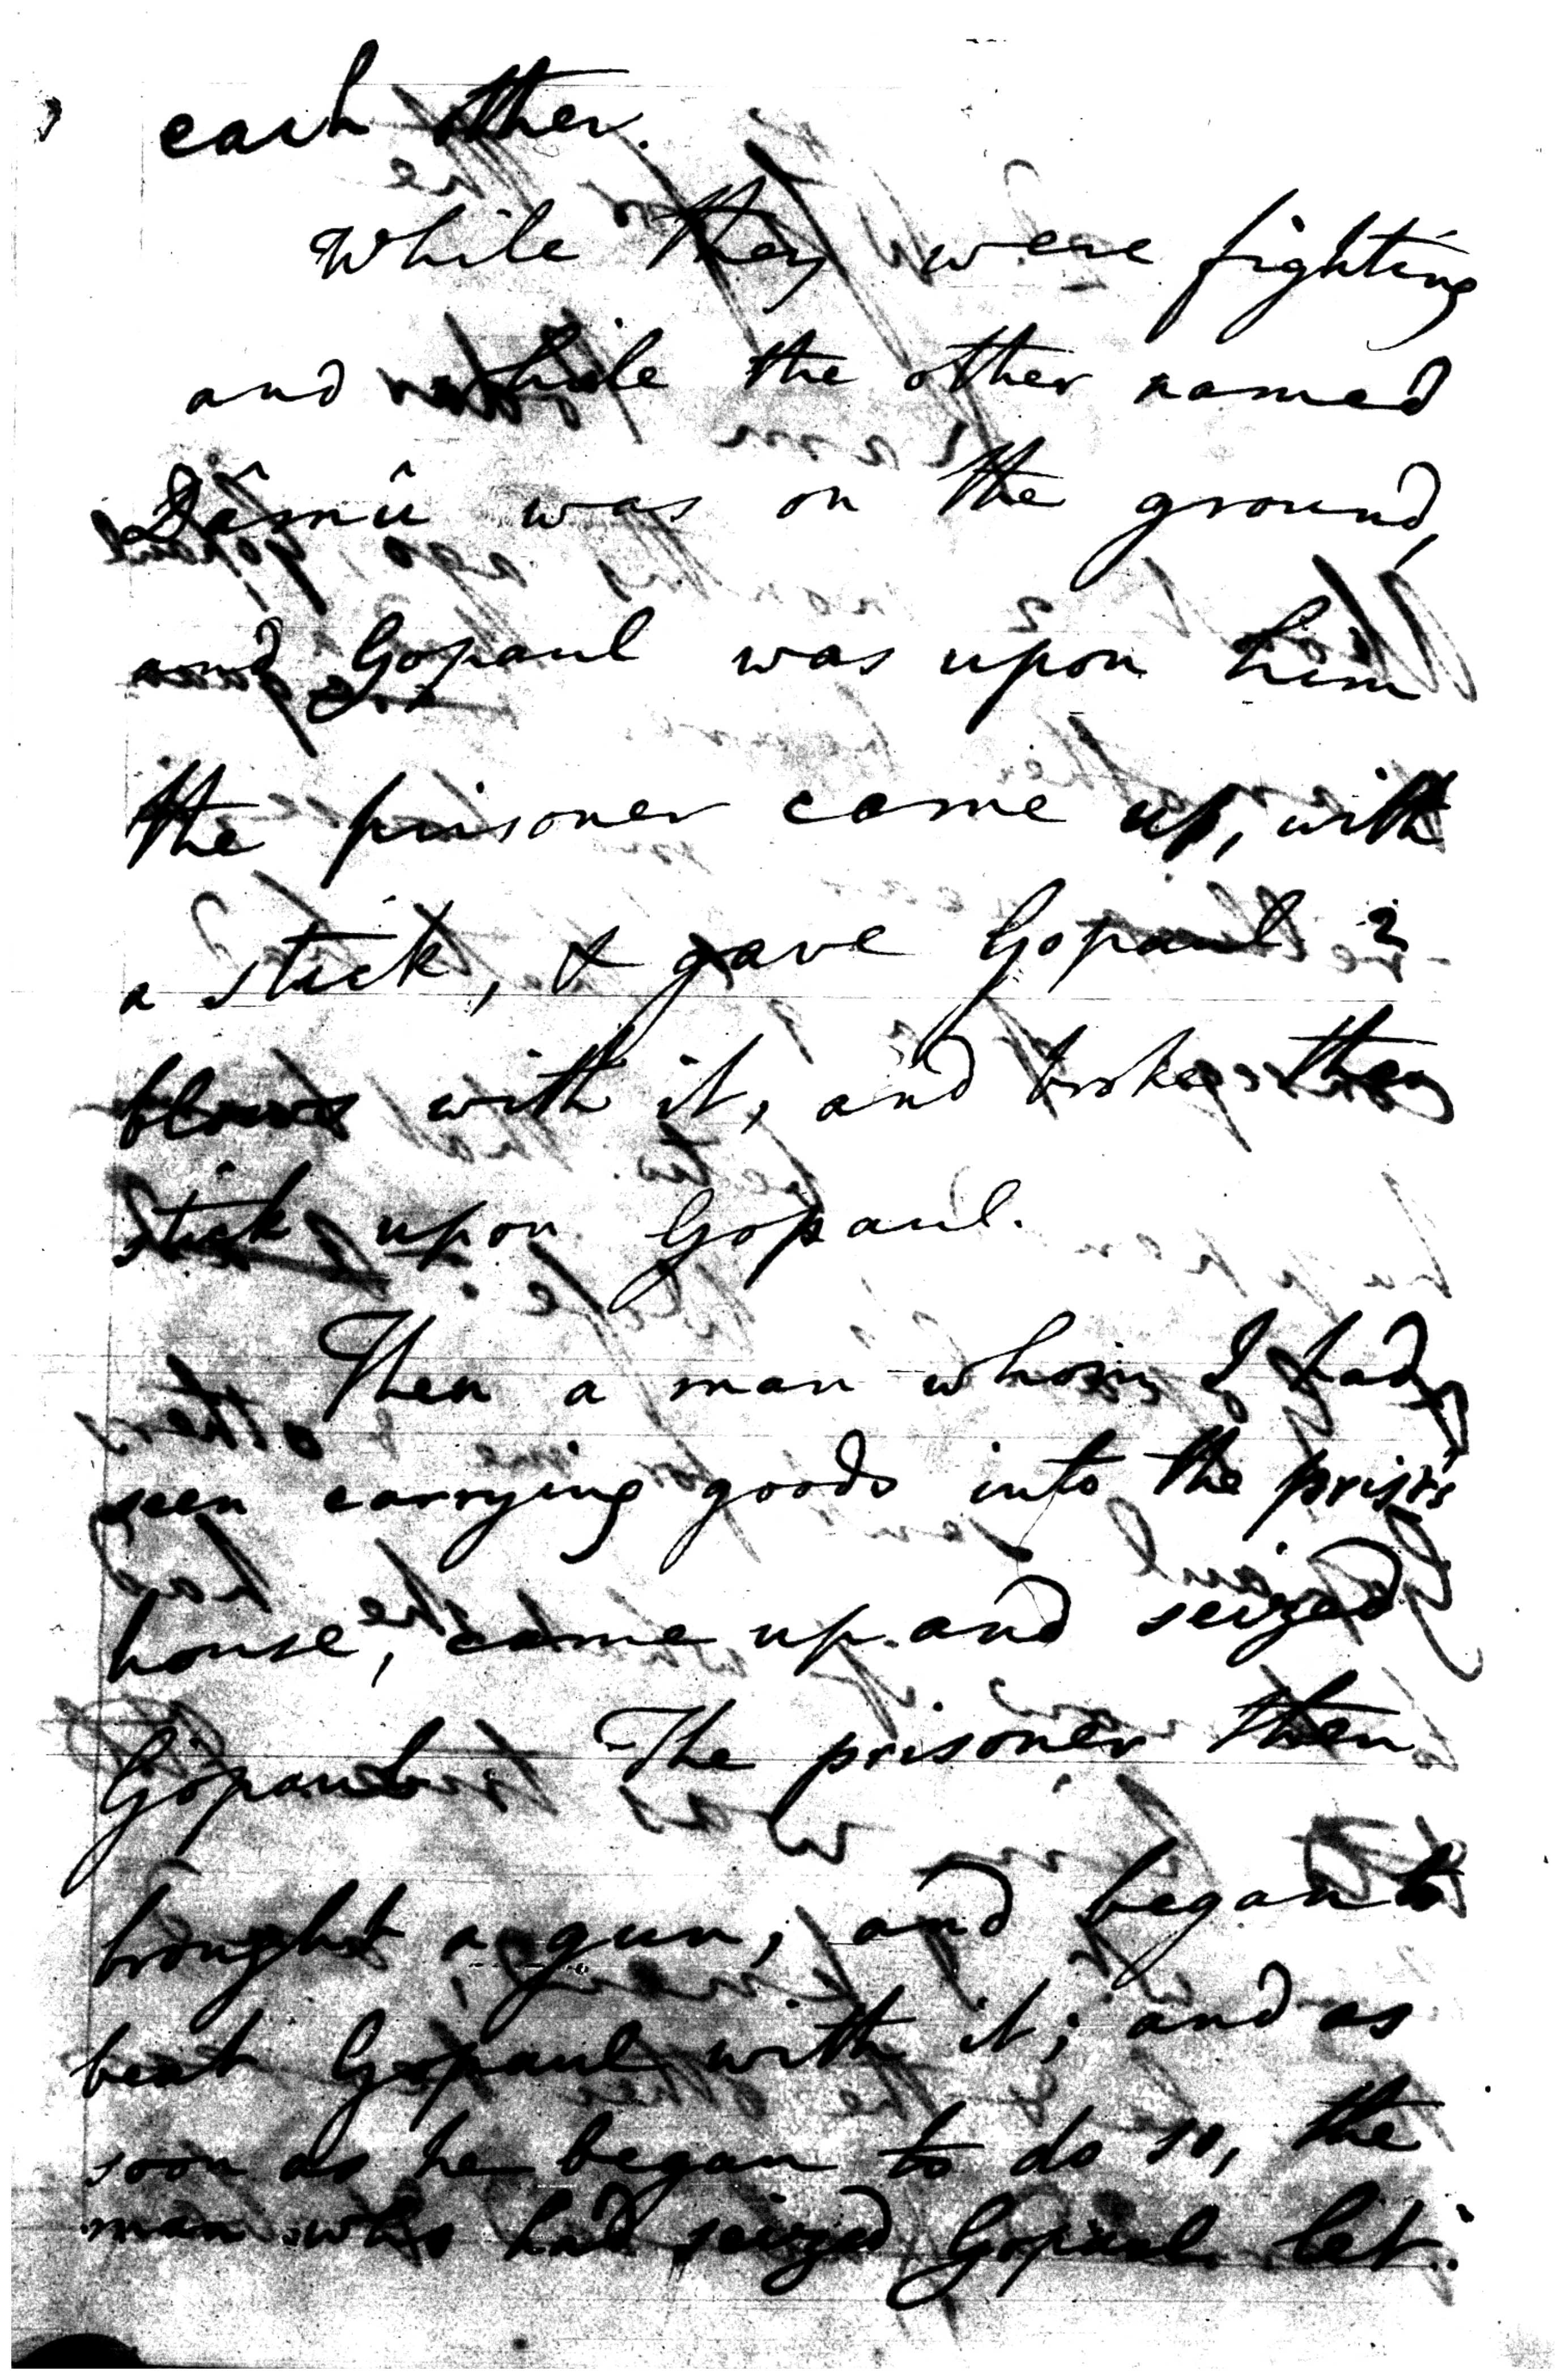 each other.
While they were fighting
and while the other named
Dâmû was on the ground,
and Gopaul was upon him
the prisoner came up, with
a stick, & gave Gopaul 2
blows with it, and broke the
stick upon Gopaul.
Then a man whom I had
seen carrying goods into the pris'rs
house, came up and seized
Gopaul. The prisoner then
brought a gun, and began to
beat Gopaul with it; and as
soon as he began to do so, the
man who had seized Gopaul let